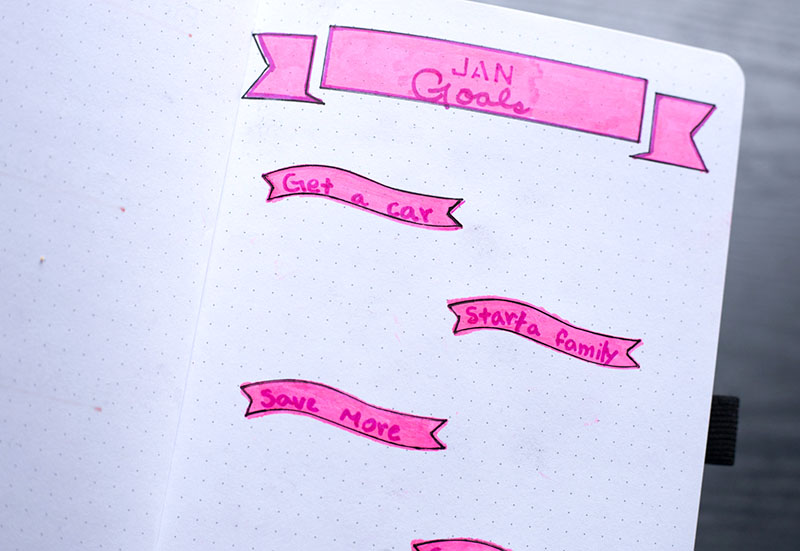 JAN
Goals
Get a car
Start a family
Save More